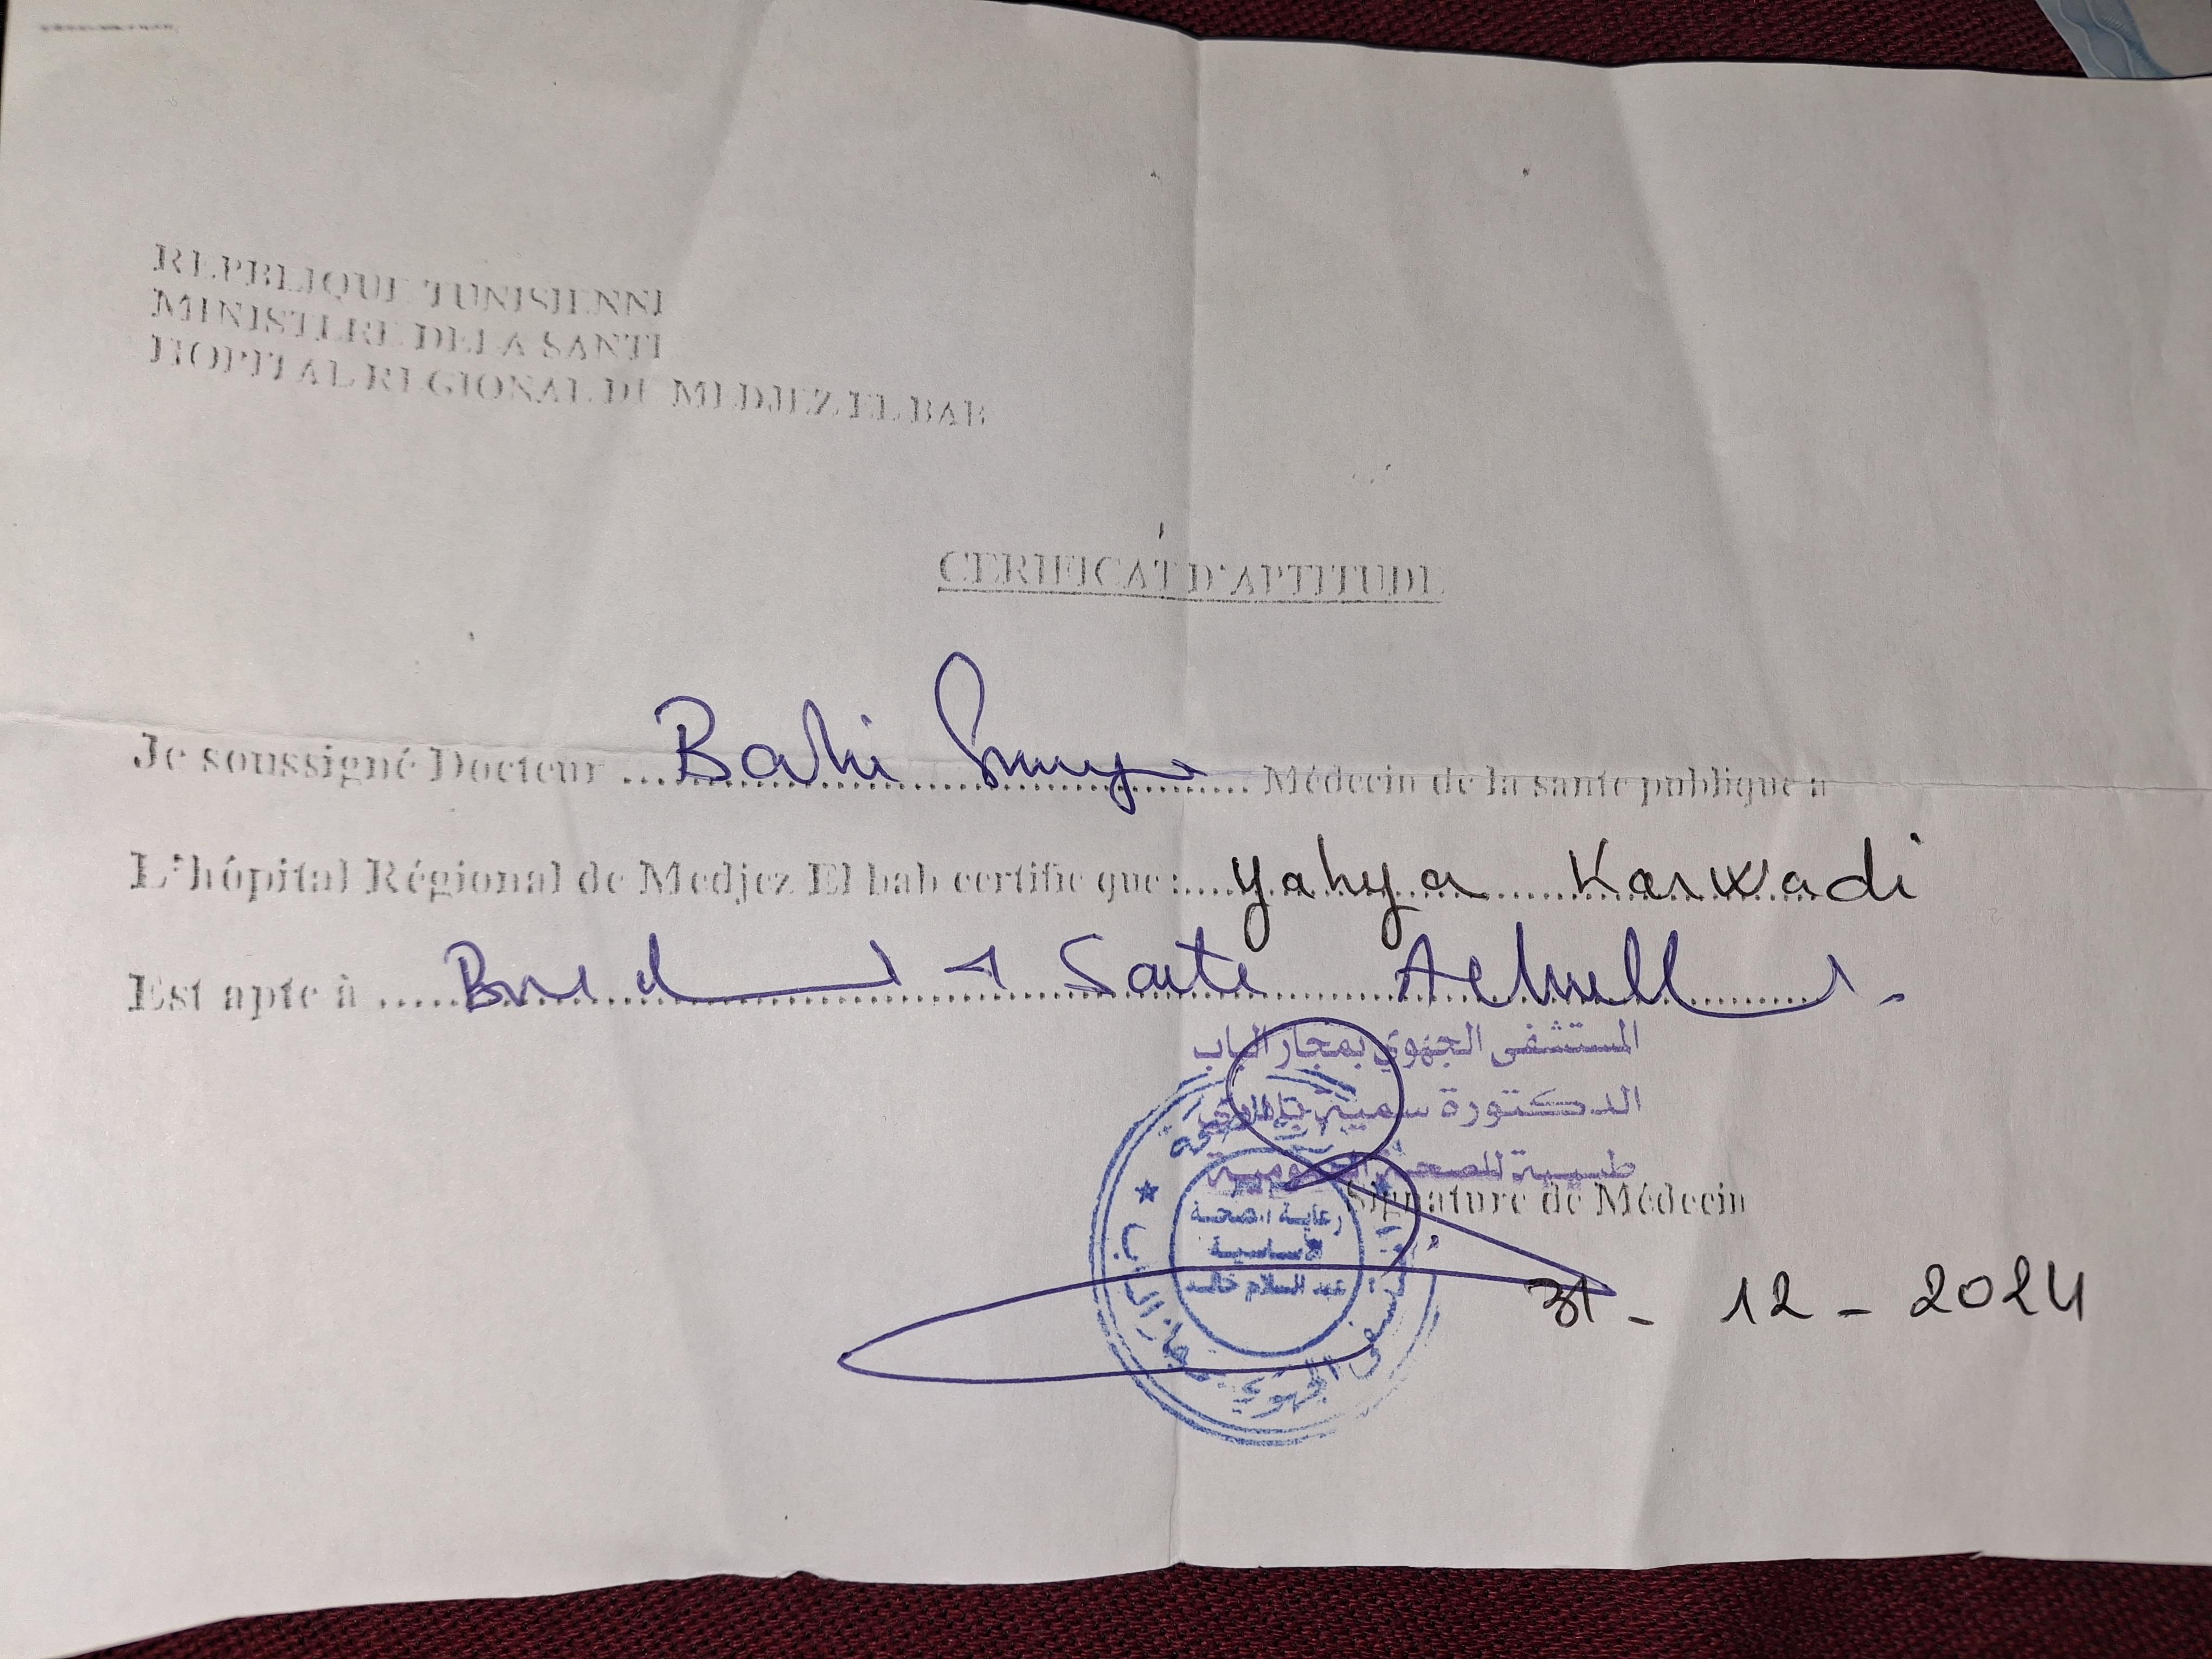 REPBLIQUE TUNISIENNE
MINISTERE DE LA SANTE
HOPITAL REGIONAL DE MEDJEZ EL BAB
CERIFICAT D'APTITUDE
Je soussigné Docteur Bahi Médecin de la santé publique a
L'hôpital Régional de Medjez El bab certifie que : Yahya Karwadi
Est apte à
المستشفى الجهوي بمجاز الباب
الدكتورة سمية
طبيبة للصحة العمومية
Signature de Médecin
رعاية الصحة
الأساسية
عبد السلام خالد
31 - 12 - 2024